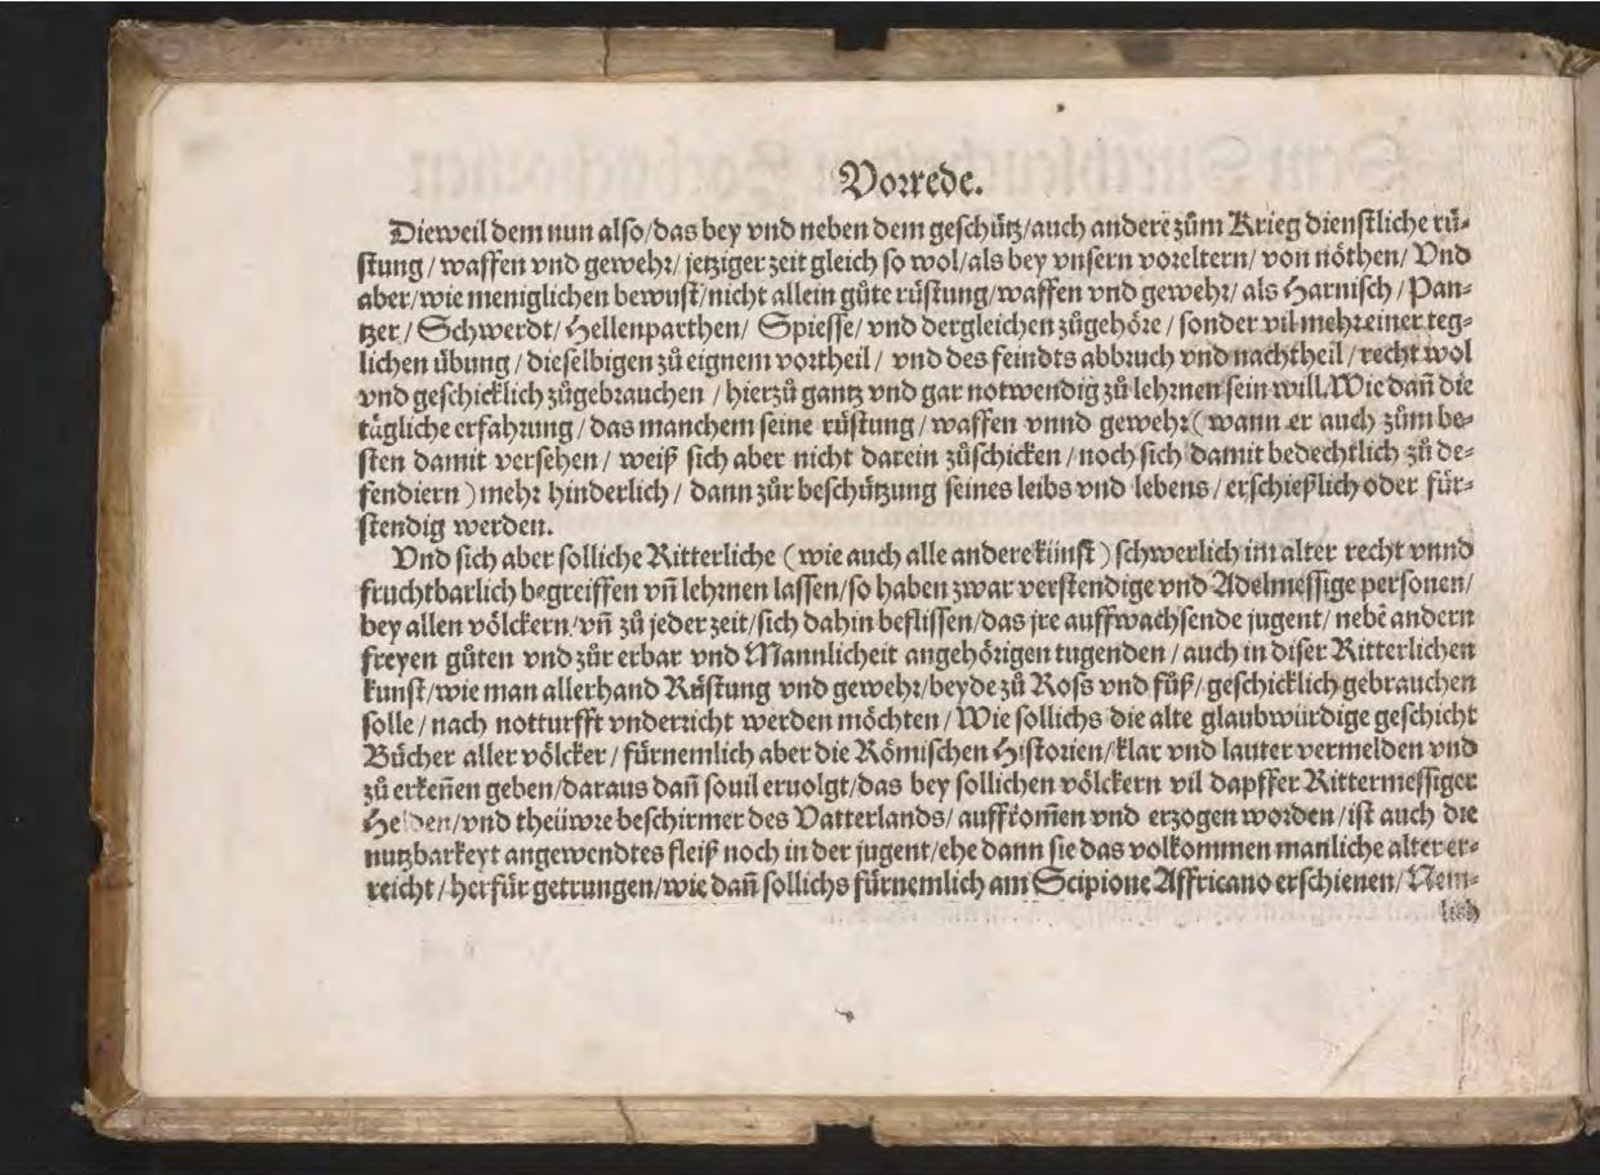 Vorrede.
Dieweil dem nun also/das bey vnd neben dem geschütz/auch andere zům Krieg dienstliche rü-
stung/waffen vnd gewehr/jetziger zeit gleich so wol/als bey vnsern voreltern/von nöthen/Vnd
aber/wie meniglichen bewust/nicht allein gůte rüstung/waffen vnd gewehr/als Harnisch/Pan-
tzer/Schwerdt/Hellenparthen/Spiesse/vnd dergleichen zůgehöre/sonder vil mehr einer teg-
lichen übung/dieselbigen zů eignem vortheil/vnd des feindts abbruch vnd nachtheil/recht wol
vnd geschicklich zůgebrauchen/hierzů gantz vnd gar notwendig zů lehrnen sein will. Wie dañ die
tägliche erfahrung/das manchem seine rüstung/waffen vnnd gewehr (wann er auch zům be-
sten damit versehen/weiß sich aber nicht darein zůschicken/noch sich damit bedechtlich zů de-
fendiern) mehr hinderlich/dann zůr beschützung seines leibs vnd lebens/erschießlich oder für-
stendig werden.
Vnd sich aber solliche Ritterliche (wie auch alle andere künst) schwerlich im alter recht vnnd
fruchtbarlich begreiffen vñ lehrnen lassen/so haben zwar verstendige vnd Adelmessige personen/
bey allen völckern/vñ zů jeder zeit/sich dahin beflissen/das jre auffwachsende jugent/nebẽ andern
freyen gůten vnd zůr erbar vnd Mannlicheit angehörigen tugenden/auch in diser Ritterlichen
kunst/wie man allerhand Rüstung vnd gewehr/beyde zů Ross vnd fůß/geschicklich gebrauchen
solle/nach notturfft vnderricht werden möchten/Wie sollichs die alte glaubwürdige geschicht
Bücher aller völcker/fürnemlich aber die Römischen Historien/klar vnd lauter vermelden vnd
zů erkeñen geben/daraus dañ souil eruolgt/das bey sollichen völckern vil dapffer Rittermessiger
Helden/vnd theüwre beschirmer des Vatterlands/auffkom̃en vnd erzogen worden/ist auch die
nutzbarkeyt angewendtes fleiß noch in der jugent/ehe dann sie das volkommen manliche alter er-
reicht/herfür getrungen/wie dañ sollichs fürnemlich am Scipione Affricano erschienen/Nem-
lich